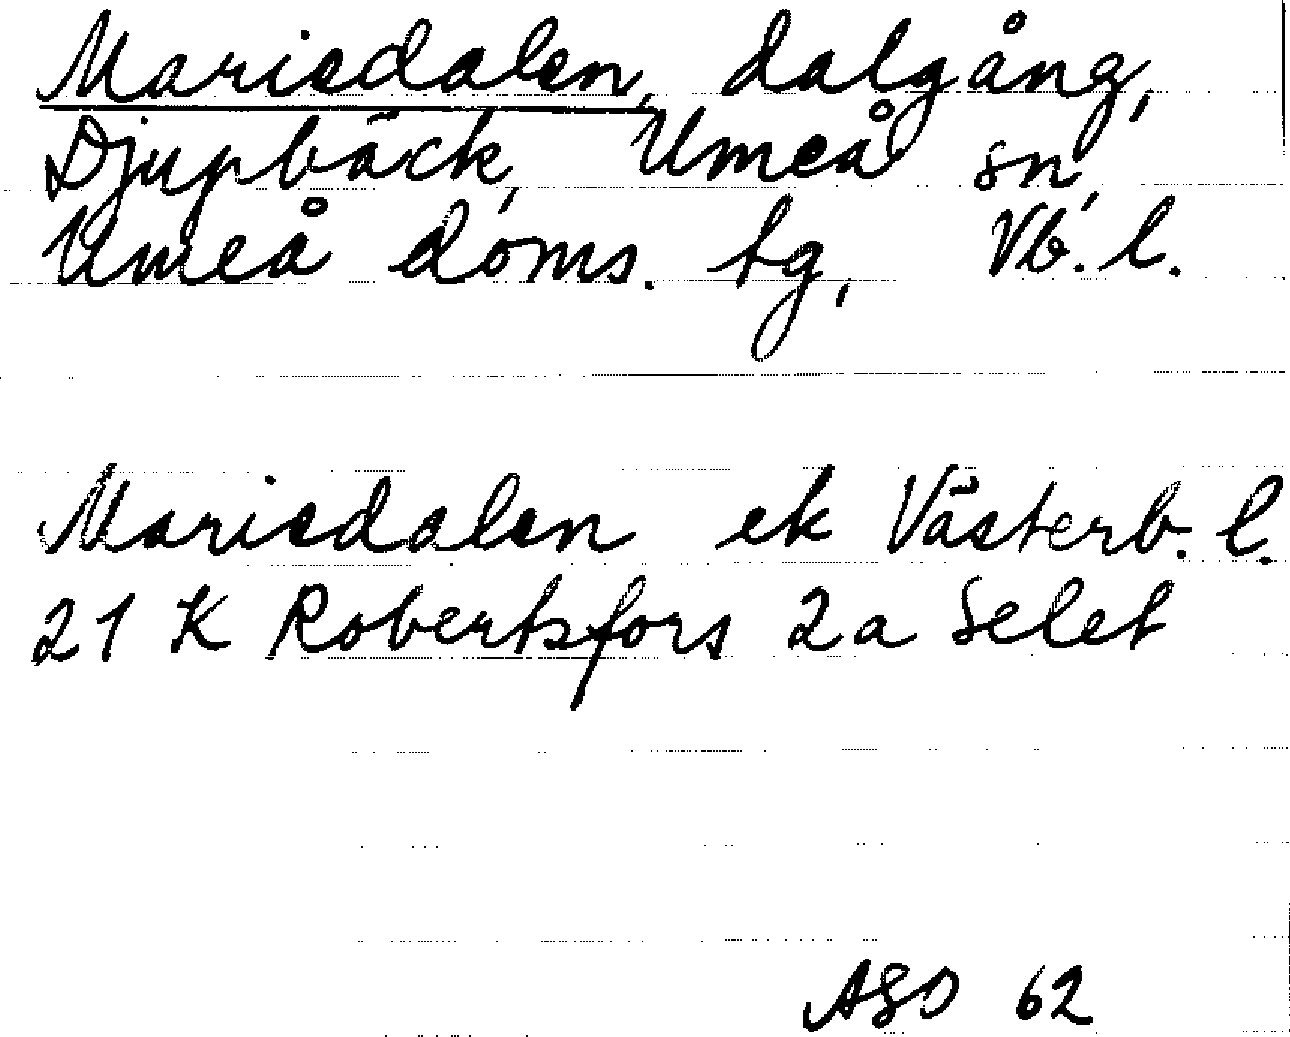 Mariedalen, dalgång,
Djupbäck, Umeå sn,
Umeå doms. tg, Vb. l.
Mariedalen ek Västerb. l.
21 K Robertsfors 2a Selet
ASD 62